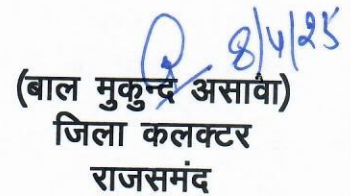 8/4/25
(बाल मुकुन्द असावा)
जिला कलक्टर
राजसमंद